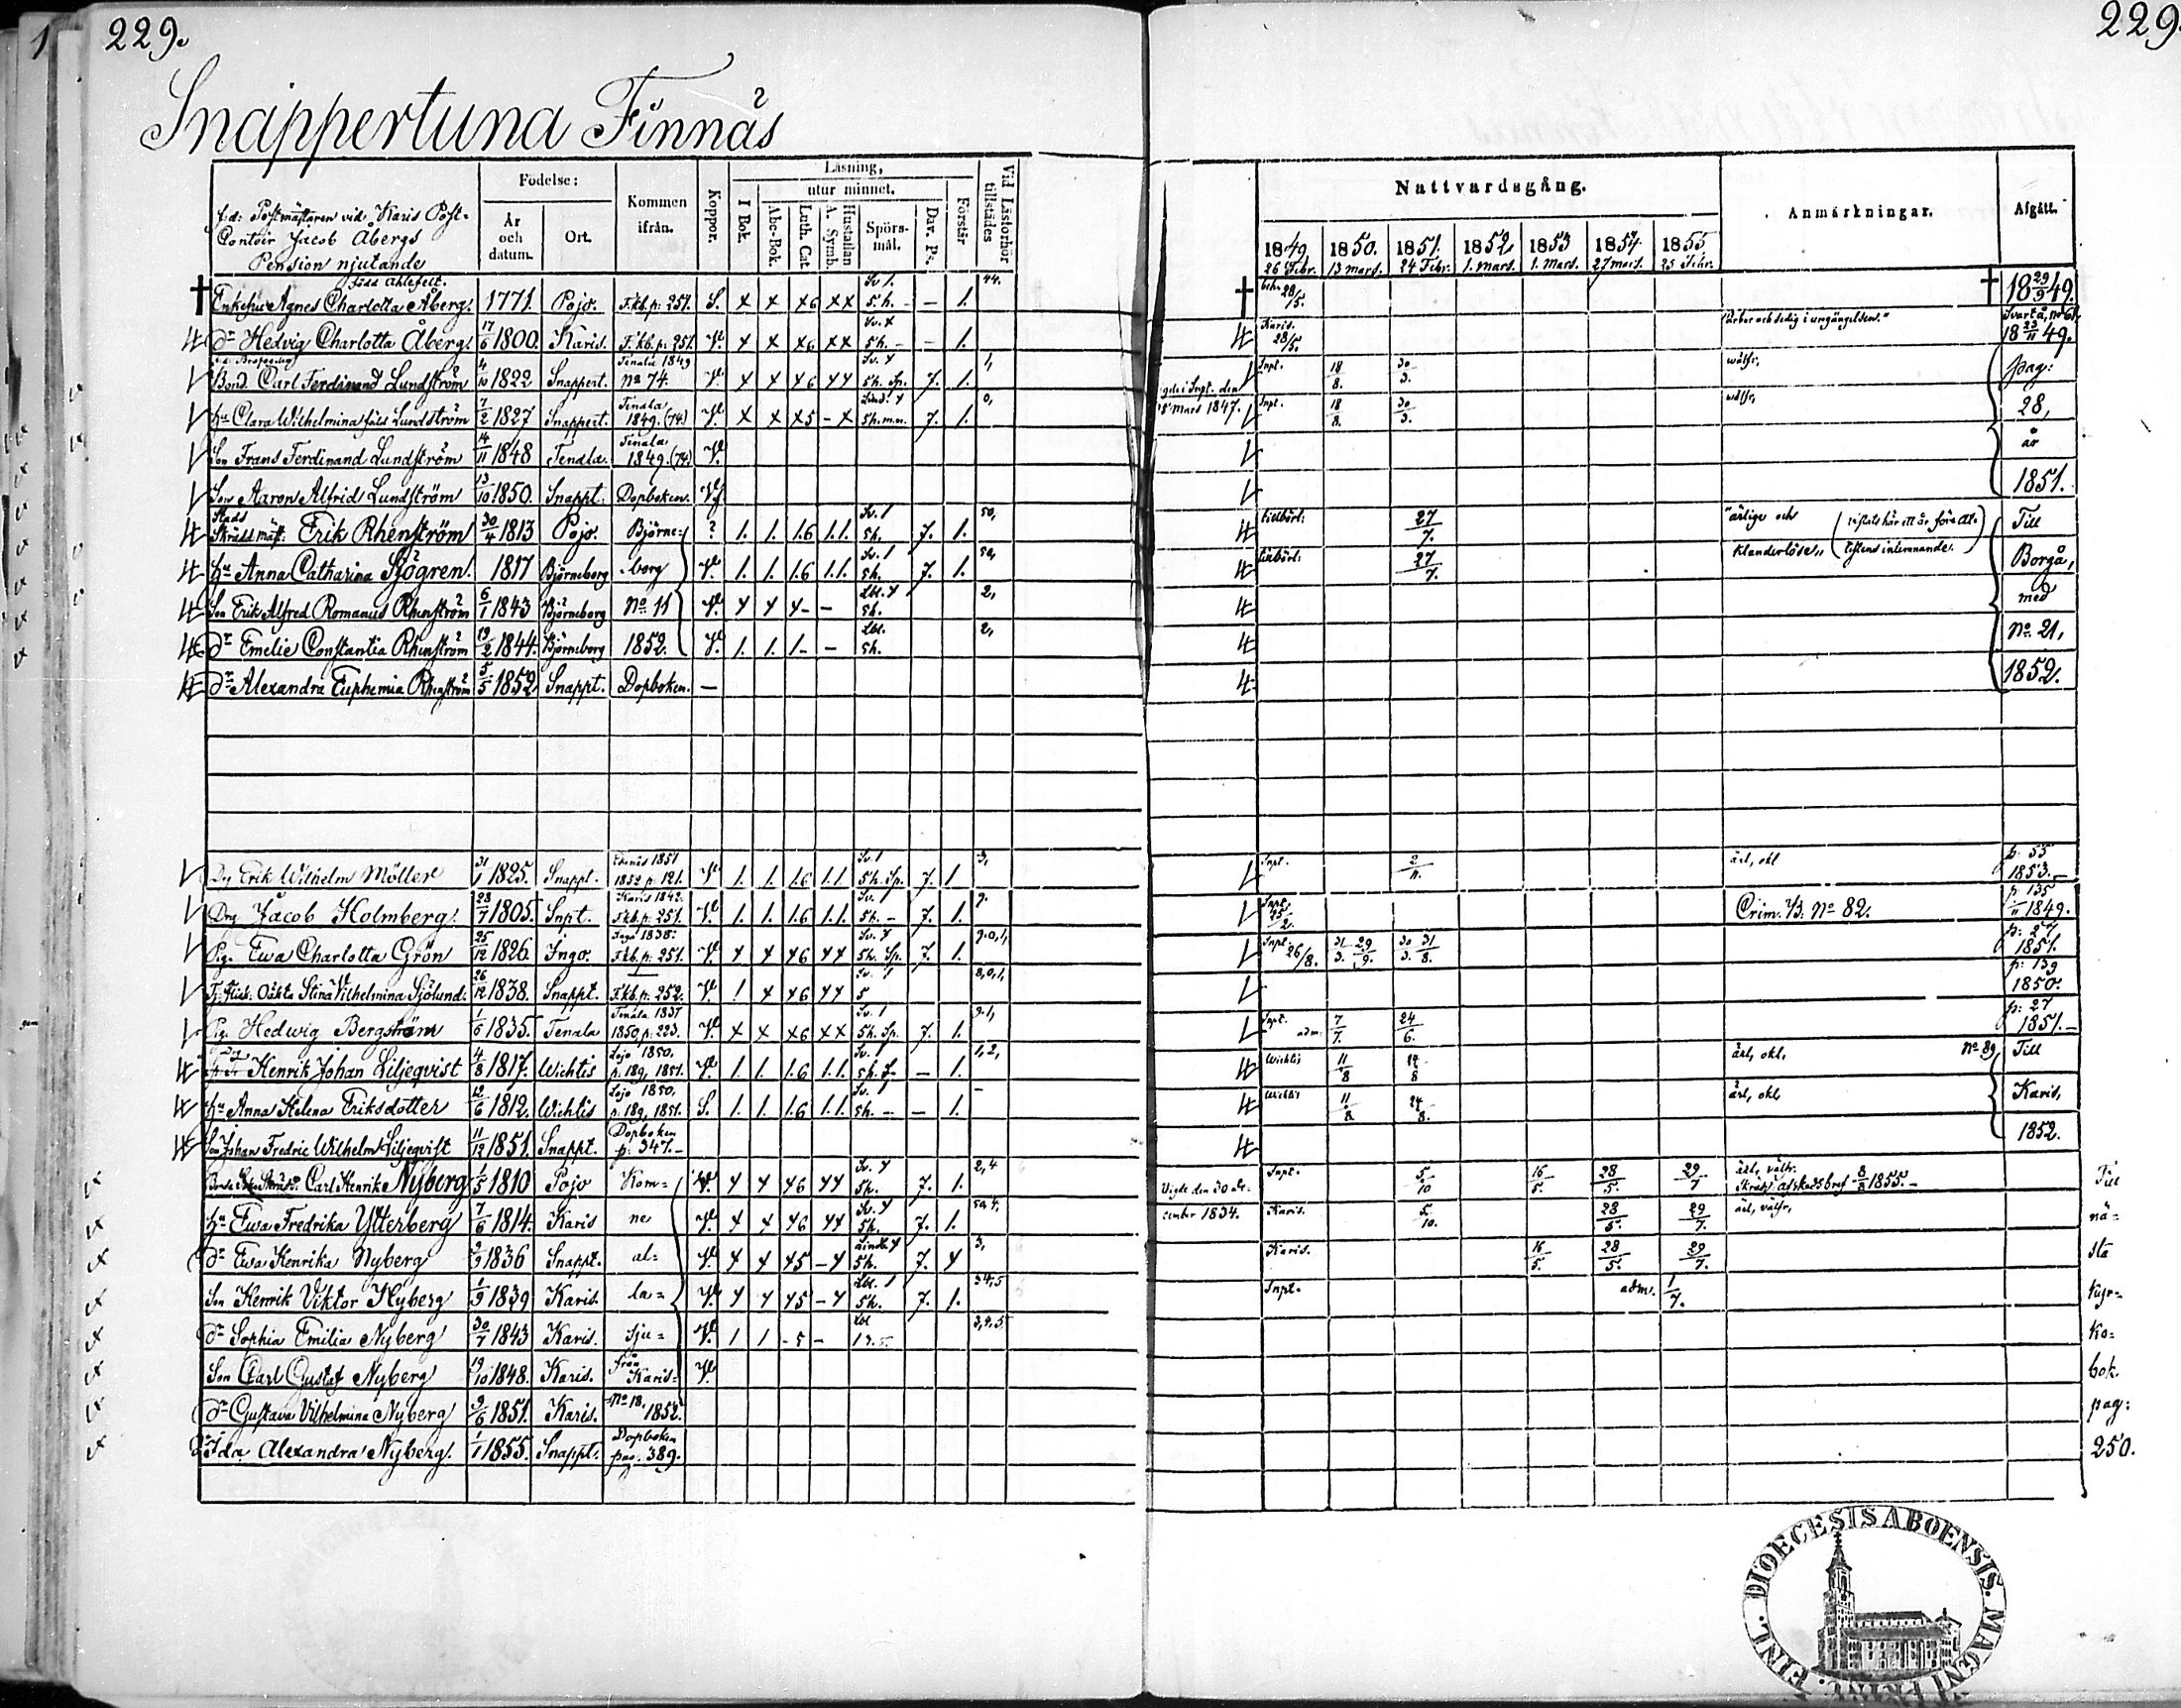 229.
229.
Snappertuna Finnäs
f.d: Postmästaren vid Karis Post=
Contoir Jacob Åbergs
Pension njutande
Födelse:
År och datum.
Ort.
Kommen ifrån.
Koppor.
Läsning,
I Bok.
utur minnet.
Abc-Bok.
Luth. Cat.
A. Symb.
Hustaflan
Spörs-mål.
Dav. Ps.
Förstår
Vid Läsförhör tillstädes
Nattvardsgång.
1849 26 Febr.
1850. 13 mars.
1851. 24 Febr.
1852 1. mars.
1853 1. Mars.
1854. 27 mars.
1855 25 Febr.
Anmärkningar.
Afgått.
född Ahlefelt.
† Enkefru Agnes Charlotta Åberg. 1771. Pojo. F.kb.p: 251. S. x x x6 xx Sv 1. 5.h. - - 1. 44. † 28/5. † 18 29/9 49.
dr Hedvig Charlotta Åberg. 17/6 1800. Karis. F.kb.p: 251. V. x x x6 xx Sv. x 5h. - - 1. Karis. 28/5. Svarta, no 61, 18 23/11 49.
Bond. Carl Ferdinand Lundström 4/10 1822 Snappert. Tenala 1849 No 74. V. x x x6 xx Sv. x 5h. Sp. 7. 1. 1, Snpt. 18/8. 30/3. wälfr, pag:
hu Clara Wilhelmina född Lundström 7/2 1827 Snappert. Tenala 1849. (74) V. x x x5 - x 5h.m.n. 7. 1. 0, Mars 1847. Snpt. 18/8. 30/3. wälfr, 28,
Son Frans Ferdinand Lundström 14/11 1848 Tenala. Tenala 1849. (74) V. år
Son Aaron Alfrid Lundström 13/10 1850. Snappt. Dopboken. V. 1851.
Stads Skräddmäst: Erik Rhenström 30/4 1813 Pojo. Björne= ? 1. 1. 1.6 1.1. Sv. 1 5h. 7. 1. 50, tillbörl: 27/7. "ärlige och (vistats här ett år före at= Till
hu Anna Catharina Sjögren. 1817 Björneborg borg V. 1. 1. 1.6 1.1. Sv. 1 5h. 7. 1. 50, tillbörl: 27/7. klanderlöse" testens inlemnande.) Borgå,
Son Erik Alfred Romanus Rhenström 6/1 1843 Björneborg No. 11 V. x x x- - Lbl. x 5h. 2, med
dr Emelie Constantia Rhenström 19/2 1844. Björneborg 1852. V. 1. 1. 1- - Lbl. 5h. 2, No. 21,
dr Alexandra Euphemia Rhenström 5/5 1852 Snappt. Dopboken. - 1852.
Dg Erik Wilhelm Möller 31/1 1825. Snappt. Ekenäs 1851 1852 p: 121. V. 1. 1. 1.6 1.1. Sv. 1 5h. Sp. 7. 1 3, Snpt. 2/11. ärl, okl p. 55 1853.-
Drg Jacob Holmberg. 28/7 1805. Snpt. Karis 1842. F.kb.p. 251. V. 1. 1. 1.6 1.1. Sv. 1 5h. - 7. 1. 9. Snpt. 25/2. Crim. No 82. p 135 1849.
Pig. Ewa Charlotta Grön 25/12 1826. Ingo. Ingo 1838: F.kb.p. 251. V. x x x6 xx Sv. x 5h. Sp. 7. 1. 9.0,1, Snpt. 26/8. 31/3. 29/9. 30/3. 31/8. p: 27 1851.
Fj. flick. Oäkta Stina Vilhelmina Sjölund. 26/12 1838. Snappt. F.kb.p. 252. V. 1 x x6 xx Sv. 1 5 8,0,1, p: 139 1850.
Pig. Hedwig Bergström 1/6 1835. Tenala Tenala 1837 1850 p: 223. V. x x x6 xx Sv. 1 5h. Sp. 7. 1. 9.1, Snpt. adm. 7/7. 24/6. p: 27 1851.-
Henrik Johan Liljeqvist 4/8 1817. Wichtis Lojo 1850, p. 189, 1851. V. 1. 1. 1.6 1.1. Sv. 1 5h. - 1. 1,2, Wichtis 11/8 24/8 ärl, okl. No 89 Till
hu Anna Helena Eriksdotter 12/6 1812. Wichtis Lojo 1850, p. 189, 1851. S. 1. 1. 1.6 1.1. Sv. 1 5h. - - 1. - Wichtis 11/8. 24/8. ärl, okl, Karis,
Son Johan Fredric Wilhelm Liljeqvist 11/12 1851. Snappt. Dopboken p. 347.- 1852.
Carl Henrik Nyberg 1/5 1810 Pojo Kom= V. x x x6 xx Sv. x 5h. 7. 1. 2,4 Vigde den 30 De- Snpt. 5/10 16/5. 28/5. 29/7 ärl, välfr. Skrädd. afskedsbref 8/8 1855.- Till
hu Ewa Fredrika Ytterberg 7/6 1814. Karis ne V. x x x6 xx Sv. x 5h. 7. 1. 50 4, cember 1834. Karis. 5/10. 28/5. 29/7. ärl, välfr, nä=
dr Ewa Henrika Nyberg 2/9 1836 Snappt. al= V. x x x5 - x 5h. 7. x 3, Karis. 16/5. 28/5. 29/7. sta
Son Henrik Viktor Nyberg 1/9 1839 Karis. la= V. x x x5 - x Lbl. 1 5h. 7. 1. 3 4,5 Snpt. adm. 1/7. Kyr=
dr Sophia Emilia Nyberg 30/7 1843 Karis. sju= V. 1 1 - 5 - Lbl 3,4,5 ko=
Son Carl Gustaf Nyberg 19/10 1848. Karis. från Karis= V. bok.
dr Gustava Vilhelmina Nyberg 9/6 1851. Karis. No 18, 1852. pag:
dr Ida Alexandra Nyberg. 1/1 1855. Snappt. Dopboken pag. 389. 250.
DIOECESIS ABOENSIS. MAGNI PRINC. FINL.